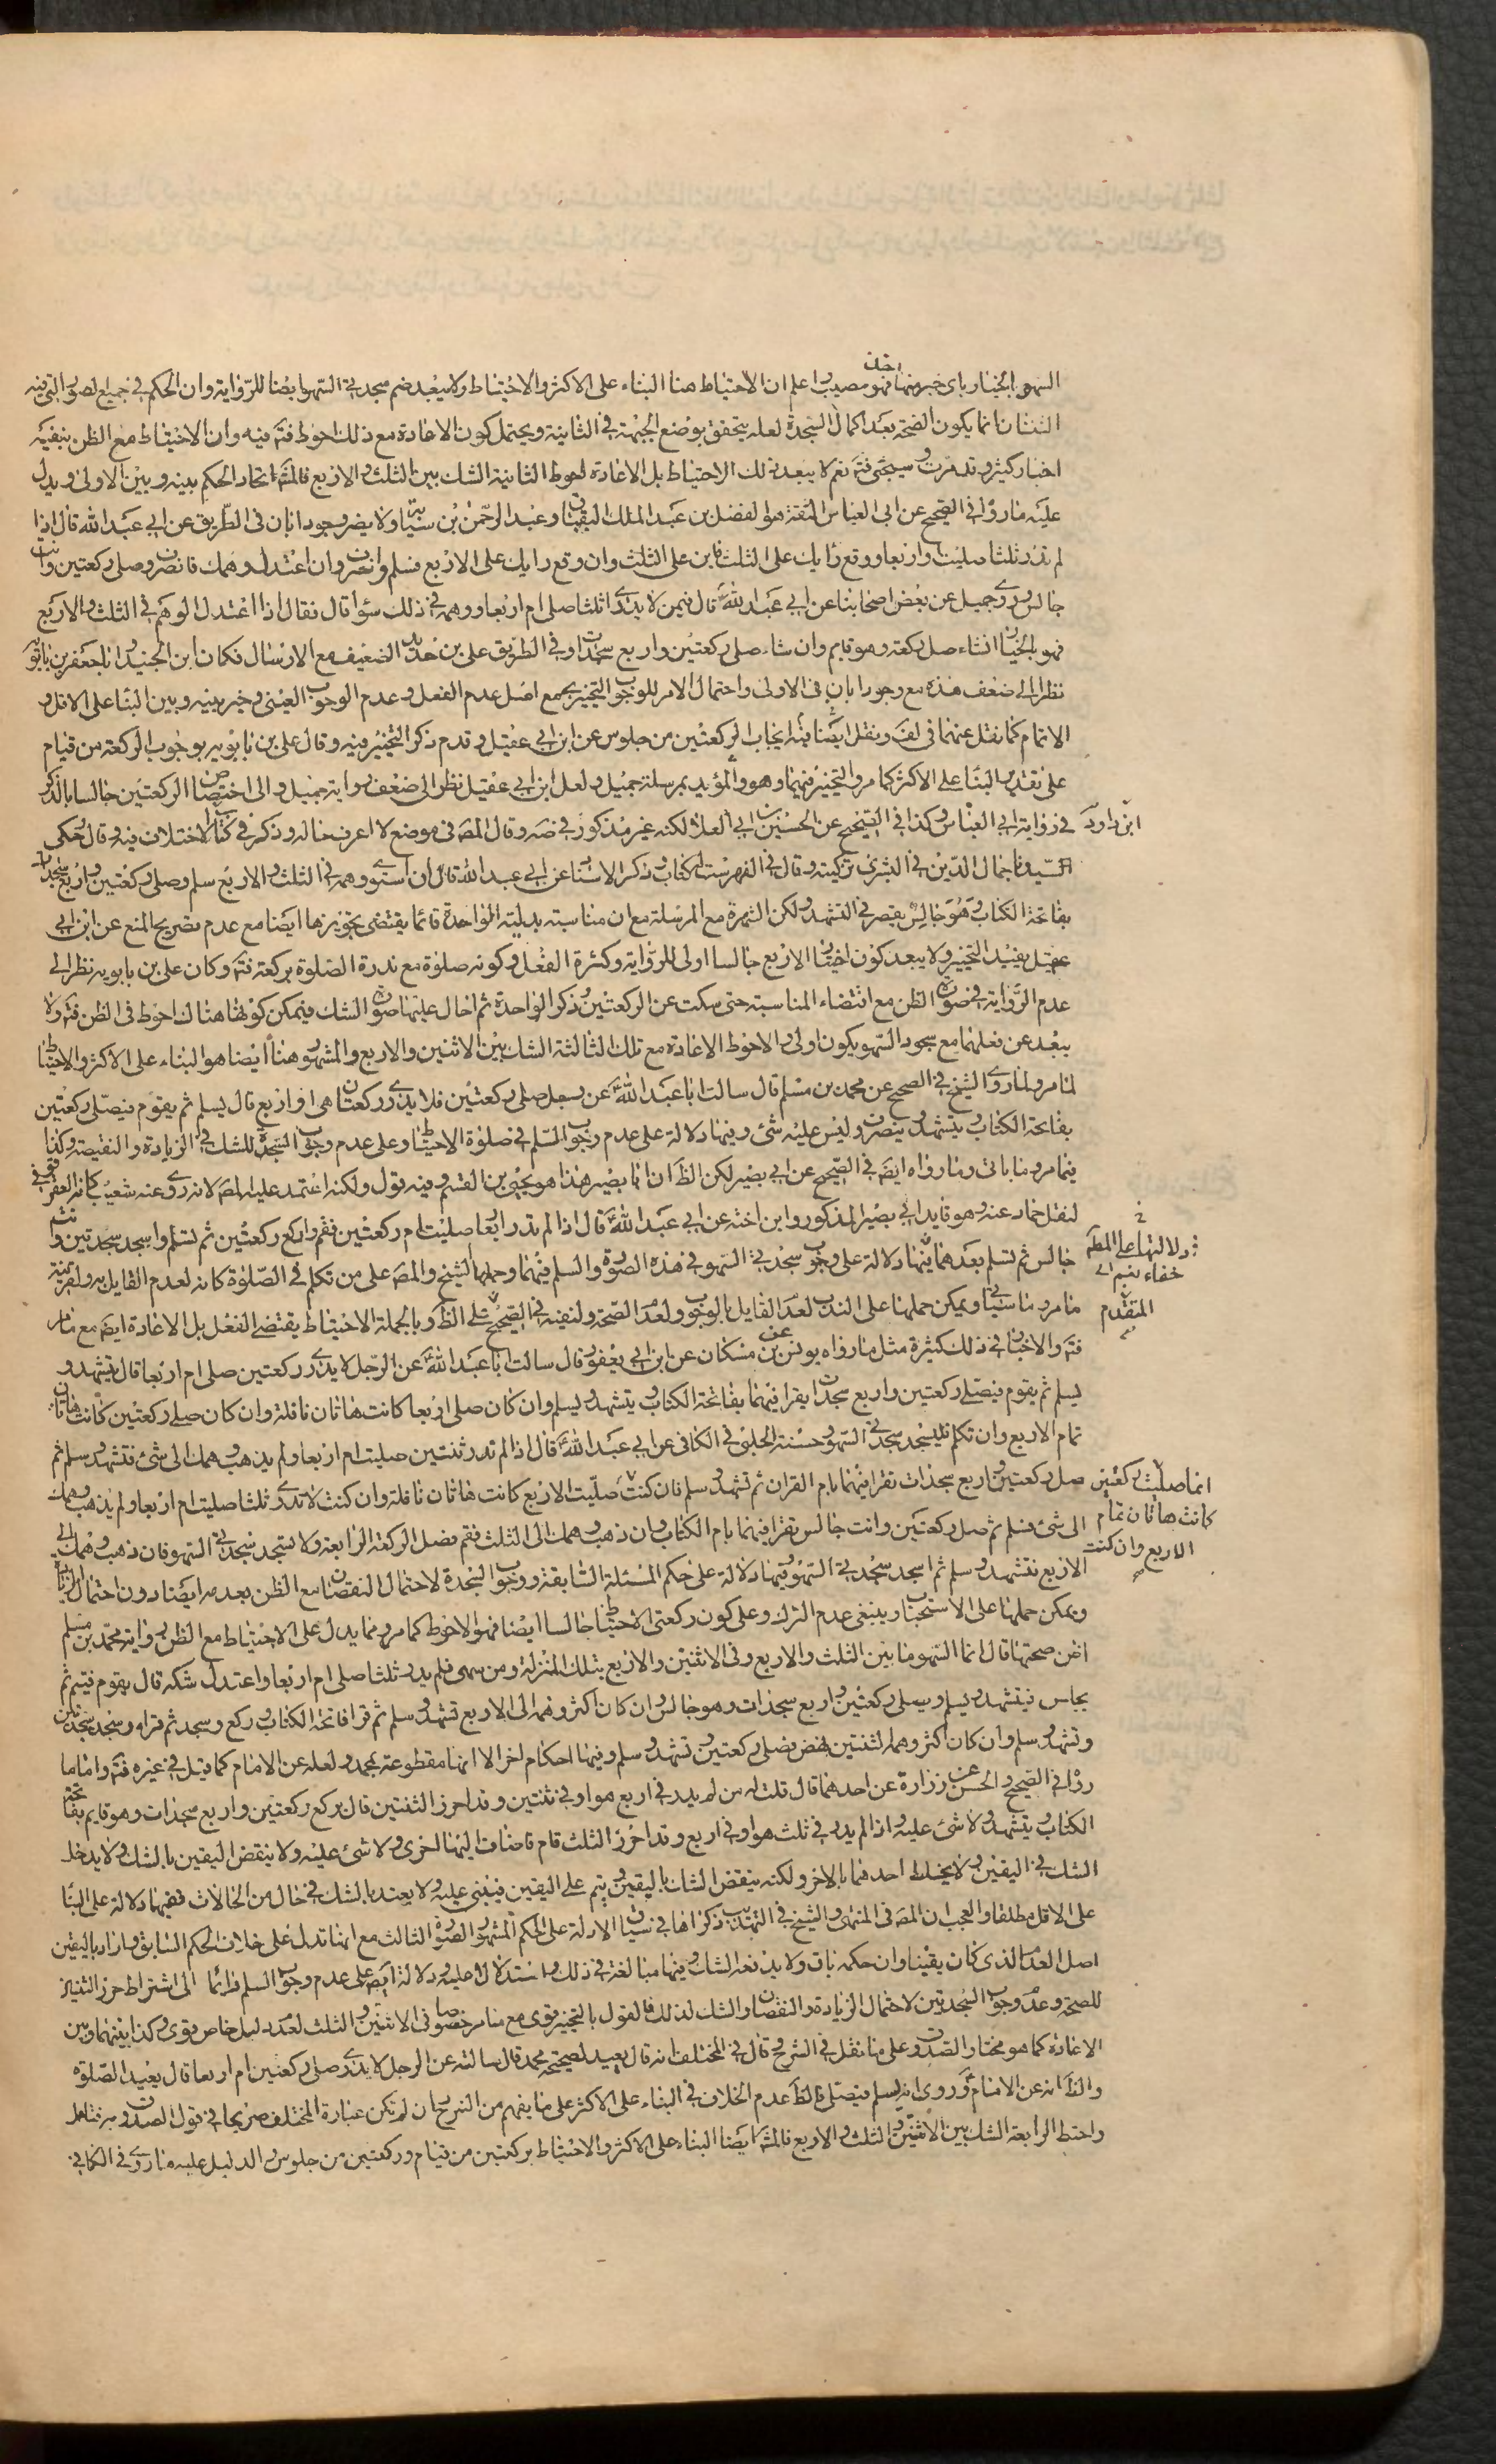 السهو بالخيار باى خبر منها اخذت فهو مصيب واعلم ان الاحتياط هنا البناء على الاكثر والاحتياط ولا يبعد ضم سجدتى السهو ايضا للرواية وان الحكم فى جميع الصور التى فيه
الثنتان انما يكون الصحة بعد اكمال السجدة لعله يتحقق بوضع الجبهة فى الثانية ويحتمل كون الاعادة مع ذلك احوط فتم فيه وان الاحتياط مع الظن ينفيه
اخبار كثيرة قد مرت وسيجئ فتم نعم لا يبعد ذلك الاحتياط بل الاعادة احوط الثانية الشك بين الثلث والاربع فالمشهور اتحاد الحكم بينه وبين الاولى ويدل
عليه ما روى فى الصحيح عن ابى العباس الثقة هو الفضل بن عبد الملك البقباق وعبد الرحمن بن سيابة ولا يضر وجود ابان فى الطريق عن ابى عبد الله قال اذا
لم تدر ثلثا صليت او اربعا ووقع رايك على الثلث فابن على الثلث وان وقع رايك على الاربع فسلم وانصرف وان اعتدل وهمك فانصرف وصل ركعتين وانت
جالس وروى جميل عن بعض اصحابنا عن ابى عبد الله قال فيمن لا يدرى اثلثا صلى ام اربعا ووهمه فى ذلك سواء قال فقال اذا اعتدل الوهم فى الثلث والاربع
فهو بالخيار ان شاء صلى ركعة وهو قايم وان شاء صلى ركعتين واربع سجدات وفى الطريق على بن حديد الضعيف مع الارسال فكان ابن الجنيد وابا جعفر بن بابويه
نظرا الى ضعف هذه مع وجود ابان فى الاولى واحتمال الامر للوجوب التخيير بجمع اصل عدم الفعل وعدم الوجوب العينى وخير بينه وبين البناء على الاقل و
الاتمام كما نقل عنهما فى لف ونقل ايضا فيه ايجاب الركعتين من جلوس عن ابن ابى عقيل وقدم ذكر التخيير فيه وقال على بن بابويه بوجوب الركعة من قيام
على تقدير البناء على الاكثر كما مر والتخيير فيهما وهو المؤيد بمرسلة جميل ولعل ابن ابى عقيل نظر الى ضعف رواية جميل والى اختصاص الركعتين جالسا بالذكر
فى رواية ابى العباس وكذا فى الصحيح عن الحسين بن ابى العلا لكنه غير مذكور فى صه وقال المصنف فى موضع لا اعرف حاله وذكر فى كتاب الاختلاف فيه وقال وحكى
ابن داود
السيدنا جمال الدين فى البشرى تزكيته وقال فى الفهرست له كتاب وذكر الاسناد عن ابى عبد الله قال ان استوى وهمه فى الثلث والاربع سلم وصلى ركعتين واربع سجدات
بفاتحة الكتاب وهو جالس يقصر فى التشهد ولكن الشهرة مع المرسلة مع ان مناسبته بدلية الواحدة قائما يقتضى تجويزها ايضا مع عدم تصريح المنع عن ابن ابى
عقيل يفيد التخيير ولا يبعد كون اختيار الاربع جالسا اولى للرواية وكثرة الفعل وكونه صلوة مع ندرة الصلوة بركعة فتم وكان على بن بابويه نظر الى
عدم الرواية فى صورة الظن مع اقتضاء المناسبة حتى سكت عن الركعتين وذكر الواحدة ثم احال عليها صورة الشك فيمكن كونها هناك احوط فى الظن فتم ولا
يبعد عن فعلهما مع سجود السهو يكون اولى والاحوط الاعادة مع تلك الثالثة الشك بين الاثنين والاربع والمشهور هنا ايضا هو البناء على الاكثر والاحتياط
لما مر ولما روى الشيخ فى الصحيح عن محمد بن مسلم قال سالت ابا عبد الله عن رجل صلى ركعتين فلا يدرى ركعتان هى او اربع قال يسلم ثم يقوم فيصلى ركعتين
بفاتحة الكتاب ويتشهد وينصرف وليس عليه شئ وفيها دلالة على عدم وجوب السلم فى صلوة الاحتياط وعلى عدم وجوب السجدة للشك فى الزيادة والنقيصة وكذا
فيما مر وما ياتى وما رواه ايض فى الصحيح عن ابى بصير لكن الظ ان ابا بصير هذا هو يحيى بن القسم وفيه قول ولكنه اعتمد عليه المص لانه روى عنه شعيب كانه العقرقوفى
لنقل حماد عنه وهو قايد ابى بصير المذكور وابن اخته عن ابى عبد الله قال اذا لم تدر اربعا صليت ام ركعتين فقم واركع ركعتين ثم تسلم واسجد سجدتين وانت
جالس ثم تسلم بعدهما فيها دلالة على وجوب سجدتى السهو فى هذه الصورة والسلم فيهما وحملها الشيخ والمص على من تكلم فى الصلوة كانه لعدم القايل به ولقرينة
ودلالتها على المط
خفاء نعم الى
المتقدم
ما مر وما سياتى ويمكن حملها على الندب لعدم القايل بالوجوب ولعدم الصحة ولنفيه فى الصحيح على الظ وبالجملة الاحتياط يقتضى الفعل بل الاعادة ايض مع ما مر
فتم والاخبار فى ذلك كثيرة مثل ما رواه يونس عن بن مسكان عن ابن ابى يعفور قال سالت ابا عبد الله عن الرجل لا يدرى ركعتين صلى ام اربعا قال يتشهد و
يسلم ثم يقوم فيصلى ركعتين واربع سجدات يقرا فيهما بفاتحة الكتاب ويتشهد ويسلم وان كان صلى اربعا كانت هاتان نافلة وان كان صلى ركعتين كانت هاتان
تمام الاربع وان تكلم فليسجد سجدتى السهو وحسنة الحلبى فى الكافى عن ابى عبد الله قال اذا لم تدر ثنتين صليت ام اربعا ولم يذهب وهمك الى شئ فتشهد وسلم ثم
صل ركعتين واربع سجدات تقرا فيهما بام القران ثم تشهد وسلم فان كنت صليت الاربع كانت هاتان نافلة وان كنت لا تدرى ثلثا صليت ام اربعا ولم يذهب وهمك
انما صليت ركعتين
كانت هاتان تمام
الاربع وان كنت
الى شئ فسلم ثم صل ركعتين وانت جالس تقرا فيهما بام الكتاب وان ذهب وهمك الى الثلث فقم فصل الركعة الرابعة ولا تسجد سجدتى السهو فان ذهب وهمك الى
الاربع فتشهد وسلم ثم اسجد سجدتى السهو فيها دلالة على حكم المسئلة السابقة ووجوب السجدة لاحتمال النقصان مع الظن بعدمه ايضا دون احتمال الزيادة
ويمكن حملها على الاستحباب وينبغى عدم الترك وعلى كون ركعتى الاحتياط جالسا ايضا فهو الاحوط كما مر ومما يدل على الاحتياط مع الظن رواية محمد بن مسلم
اظن صحتها قال انما السهو ما بين الثلث والاربع وفى الاثنين والاربع بتلك المنزلة ومن سهى فلم يدر ثلثا صلى ام اربعا واعتدل شكه قال يقوم فيتم ثم
يجلس فيتشهد ويسلم ويصلى ركعتين واربع سجدات وهو جالس وان كان اكثر وهمه الى الاربع تشهد وسلم ثم قرا فاتحة الكتاب وركع وسجد ثم قراه وسجد سجدتين
وتشهد وسلم وان كان اكثر وهمه الثنتين نهض فصلى ركعتين وتشهد وسلم وفيها احكام اخر الا انها مقطوعة بمحمد ولعله عن الامام كما قيل فى غيره فتم واما ما
روى فى الصحيح والحسن عن زرارة عن احدهما قال قلت له من لم يدر فى اربع هو او فى ثنتين وقد احرز الثنتين قال يركع ركعتين واربع سجدات وهو قايم بفاتحة
الكتاب ويتشهد ولا شئ عليه واذا لم يدر فى ثلث هو او فى اربع وقد احرز الثلث قام فاضاف اليها اخرى ولا شئ عليه ولا ينقض اليقين بالشك ولا يدخل
الشك فى اليقين ولا يخلط احدهما بالاخر ولكنه ينقض الشك باليقين ويتم على اليقين فيبنى عليه ولا يعتد بالشك فى حال من الحالات ففيها دلالة على البناء
على الاقل مطلقا والعجب ان المص فى المنتهى والشيخ فى التهذيب ذكراها فى سياق الادلة على الحكم المشهور الصورة الثالث مع انها تدل على خلاف الحكم السابق واراد باليقين
اصل العدد الذى كان يقينا وان حكمه باق ولا يدفعه الشك وفيها مبالغة فى ذلك واستدلال عليه ودلالة ايض على عدم وجوب السلم فرائما الى اشتراط حرز الثنتين
للصحة وعدم وجوب السجدتين لاحتمال الزيادة والنقصان والشك لذلك فالقول بالتخيير قوى مع ما مر خصوصا فى الاثنين والثلث لعدم دليل خاص قوى وكذا بينهما وبين
الاعادة كما هو مختار الصدوق على ما نقل فى الشرح قال فى المختلف انه قال يعيد لصحيحة محمد قال سالته عن الرجل لا يدرى صلى ركعتين ام اربعا قال يعيد الصلوة
والظ انه عن الامام وروى انه يسلم فيصلى فالظ عدم الخلاف فى البناء على الاكثر على ما يفهم من الشرح ان لم تكن عبارة المختلف صريحا فى قول الصدوق به فتامل
واحتط الرابعة الشك بين الاثنين والثلث والاربع فالمشهور ايضا البناء على الاكثر والاحتياط بركعتين من قيام وركعتين من جلوس والدليل عليه ما روى فى الكافى